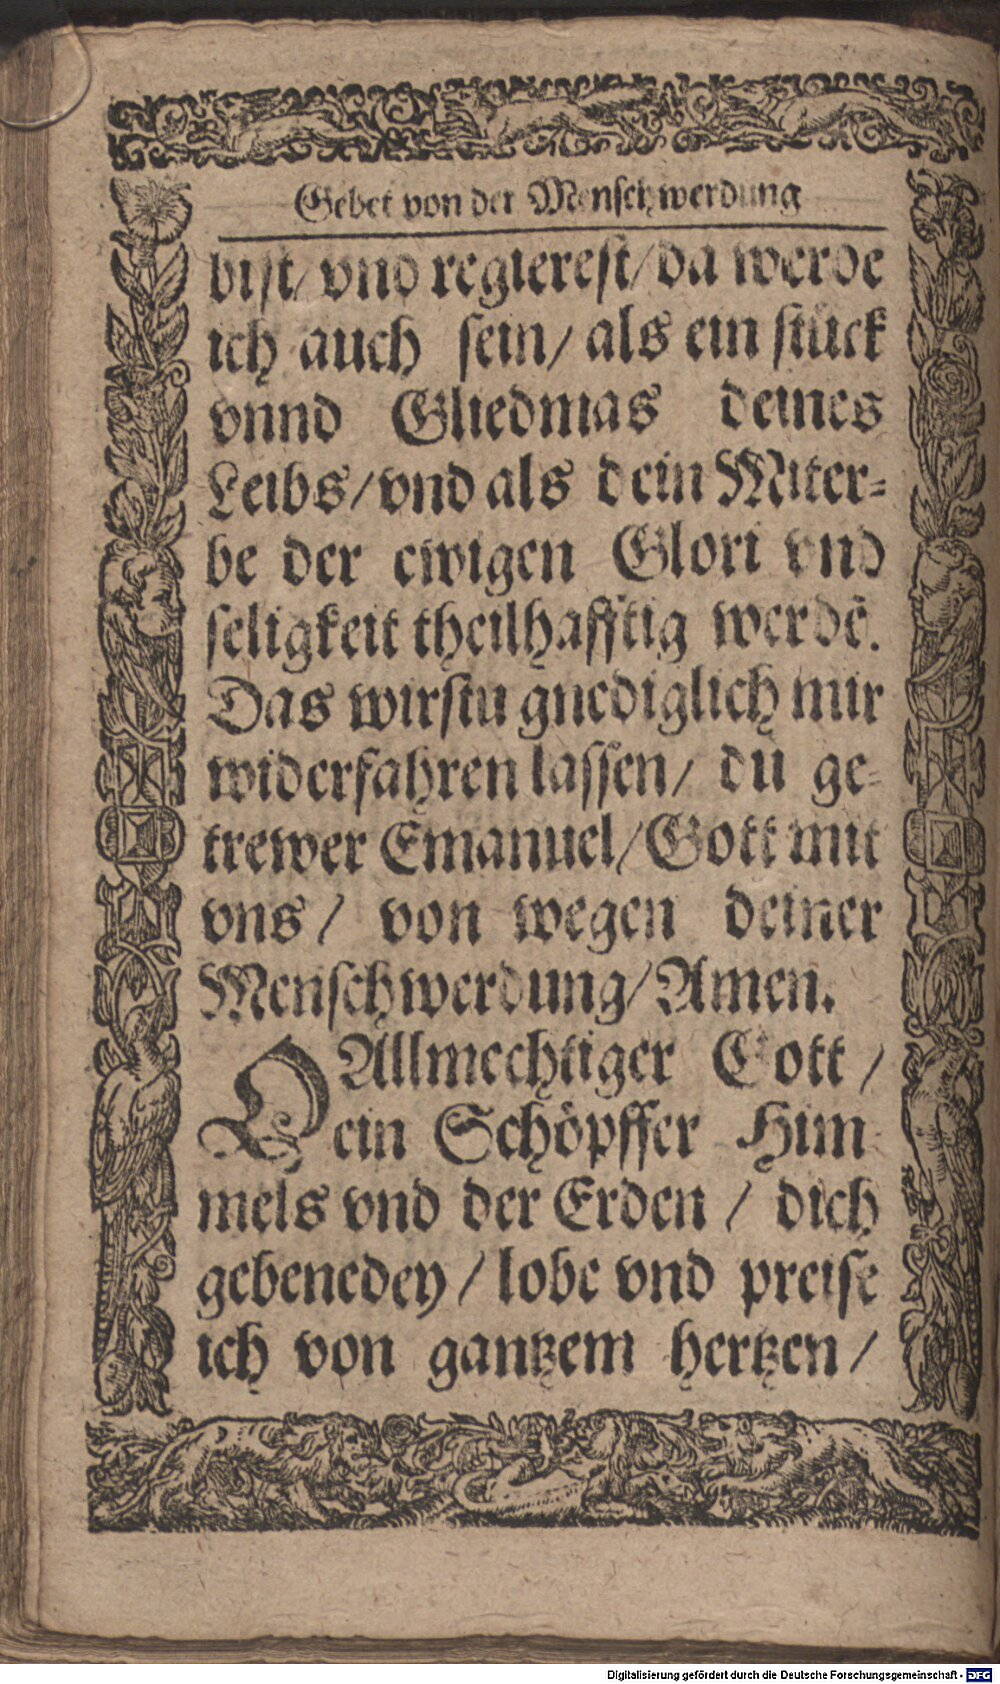 Gebet von der Menschwerdung
bist/ vnd regierest/ da werde
ich auch sein/ als ein stück
vnnd Gliedmas deines
Leibs/ vnd als dein Miter-
be der ewigen Glori vnd
seligkeit theilhafftig werdẽ.
Das wirstu gnediglich mir
widerfahren lassen/ du ge-
trewer Emanuel/ Gott mit
vns/ von wegen deiner
Menschwerdung/ Amen.
O Allmechtiger Gott/
ein Schöpffer Him-
mels vnd der Erden/ dich
gebenedey/ lobe vnd preise
ich von gantzem hertzen/
Digitalisierung gefördert durch die Deutsche Forschungsgemeinschaft - DFG